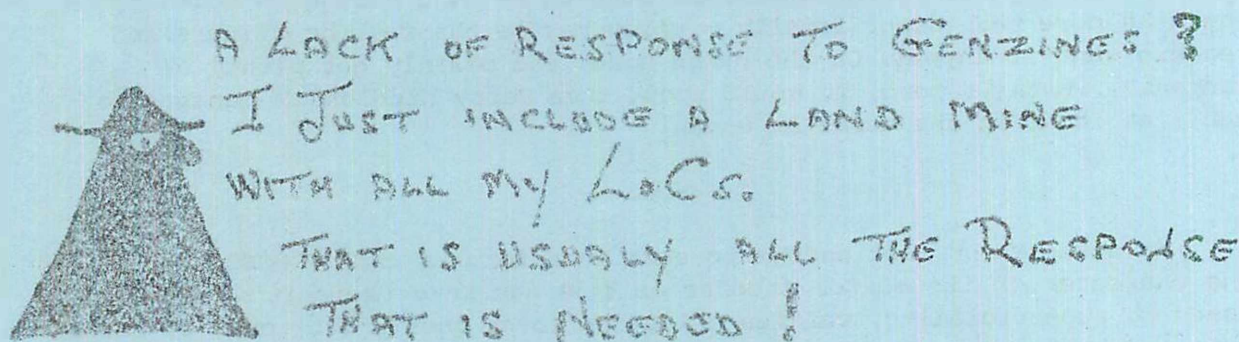 A LACK OF RESPONSE TO GENZINES?
I JUST INCLUDE A LAND MINE
WITH ALL MY LoCs.
THAT IS USUALY ALL THE RESPONSE
THAT IS NEEDED!